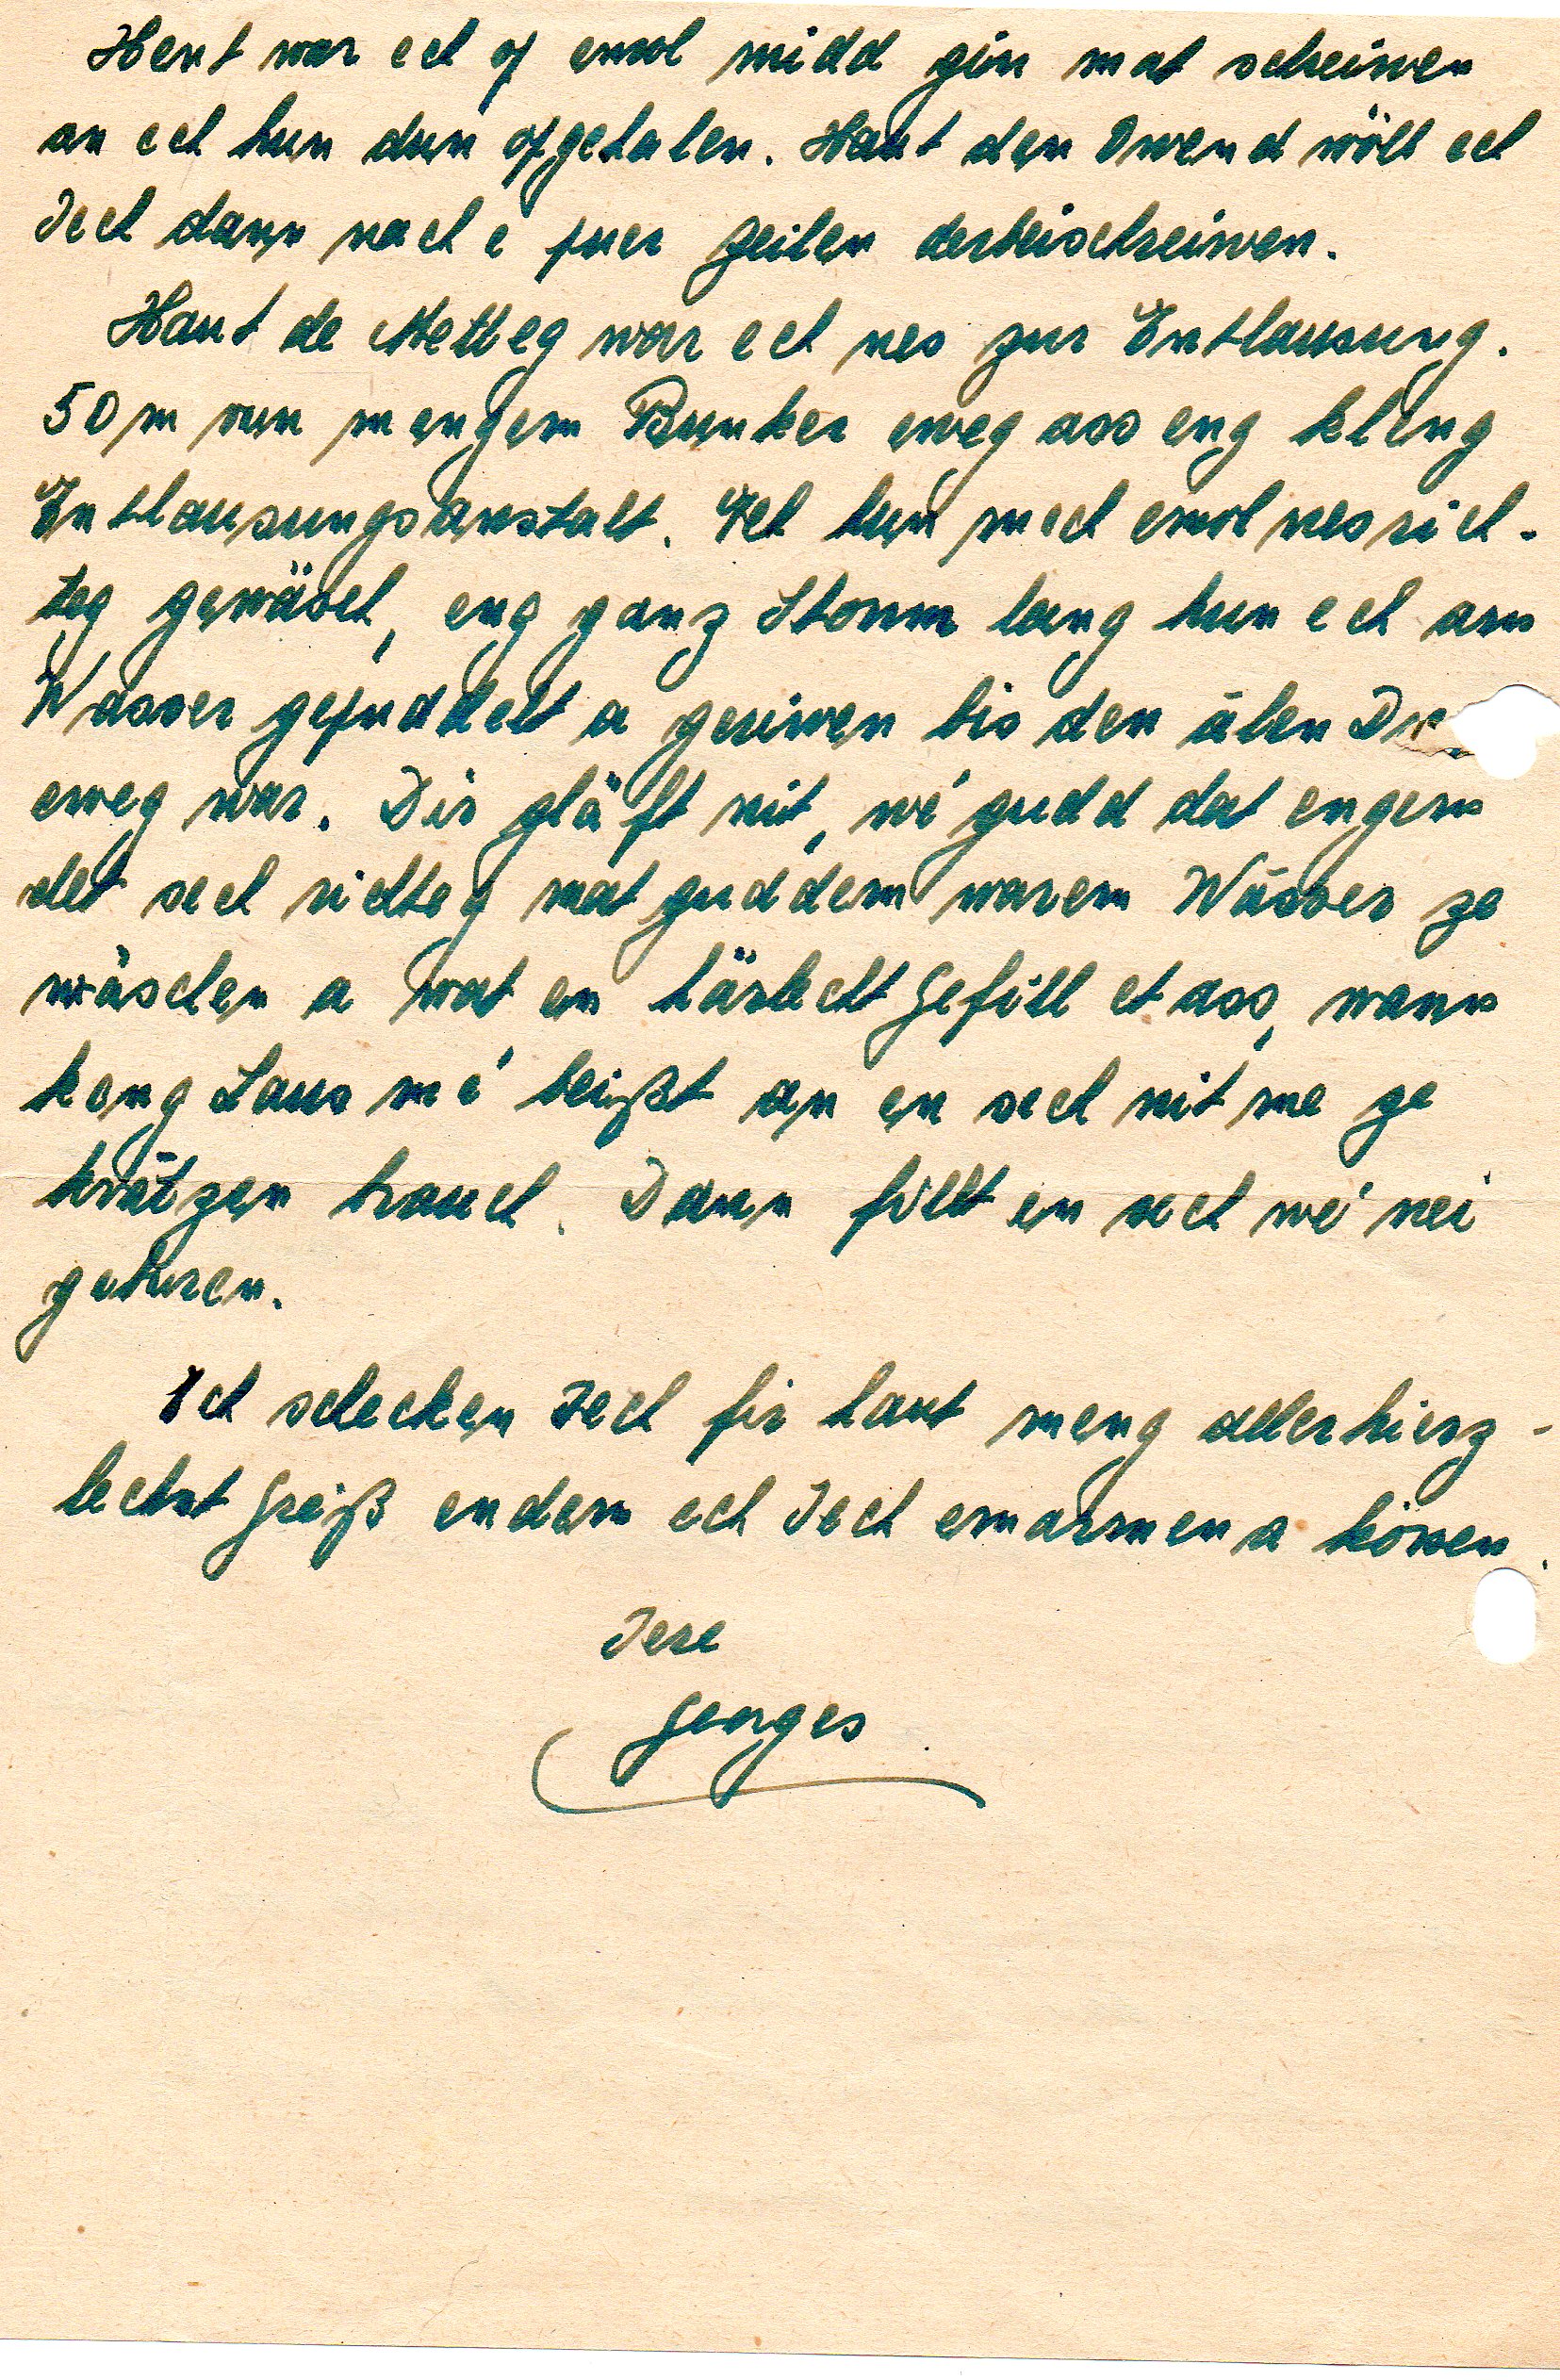 Hent war ech of emol midd gin mat schreiwen
an ech hun dun opgehalen. Haut den Owend wöll ech
Iech dann nach e puer Zeilen derbeischreiwen.
Haut de Metteg war ech nes zur Entlausung.
50 m vun mengem Bunker eweg ass eng kleng
Entlausungsanstalt. Ech hun mech emol nes rich-
teg gewäsch, eng ganz Stonn lang hun ech am
Wasser gepuddelt a geriwen bis den alen
eweg war. Dir gläft nit, wé gudd dat engem
det sech richteg mat guddem warem Wasser ze
wäschen a wat en härlecht Gefill et ass, wann
keng Laus mé beißt an en sech nit me ze
krätzen brauch. Dann fillt en sech wé nei
geburen.
Ech schecken Iech fir haut meng allerhierz-
lechst Greiß endem ech Iech emarmen a kössen.
Iere
Georges